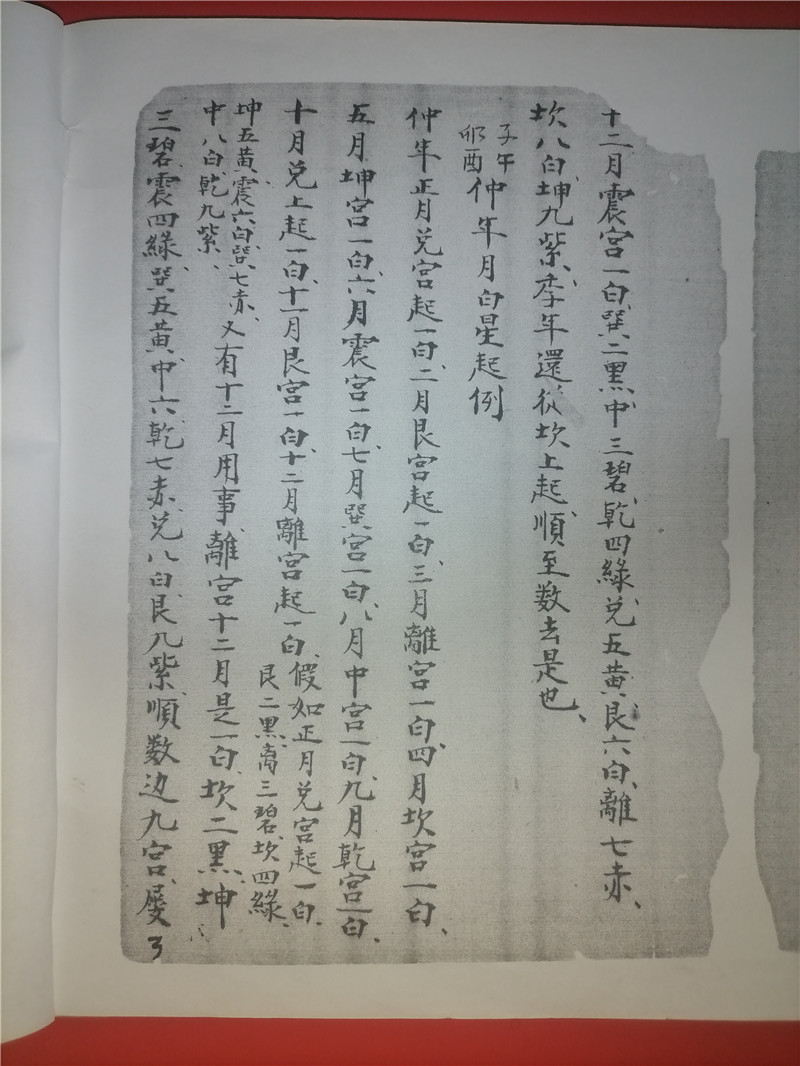 十二月震宫一白、巽二黑、中三碧、乾四綠、兑五黄、艮六白、離七赤、
坎八白、坤九紫、季年還從坎上起、順至数去是也、
子午
卯酉
仲年月白星起例
仲年正月兑宫起一白、二月艮宫起一白、三月離宫一白、四月坎宫一白、
五月坤宫一白、六月震宫一白、七月巽宫一白、八月中宫一白、九月乾宫一白、
十月兑上起一白、十一月艮宫一白、十二月離宫起一白、
假如正月兑宫起一白、
艮二黑、离三碧、坎四綠、
坤五黄、震六白、巽七赤、
中八白、乾九紫、
又有十二月用事、離宫十二月是一白、坎二黑、坤
三碧、震四綠、巽五黄、中六、乾七赤、兑八白、艮九紫、順数边九宫、屡
3